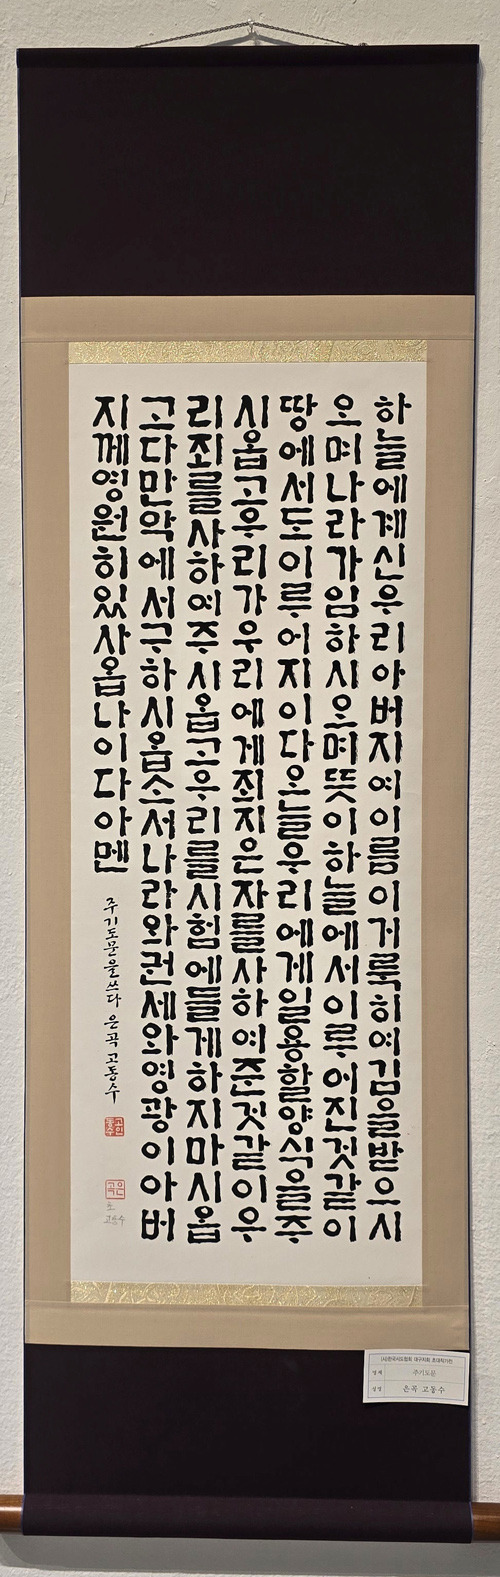 하늘에계신우리아버지여이름이거룩히여김을받으시
오며나라가임하시오며뜻이하늘에서이루어진것같이
땅에서도이루어지이다오늘우리에게일용할양식을주
시옵고우리가우리에게죄지은자를사하여준것같이우
리죄를사하여주시옵고우리를시험에들게하지마시옵
고다만악에서구하시옵소서나라와권세와영광이아버
지께영원히있사옵나이다아멘
주기도문을쓰다 은곡 고동수
은곡
고동수
(사)한국서도협회 대구지회 초대작가전
명제 주기도문
성명 은곡 고동수